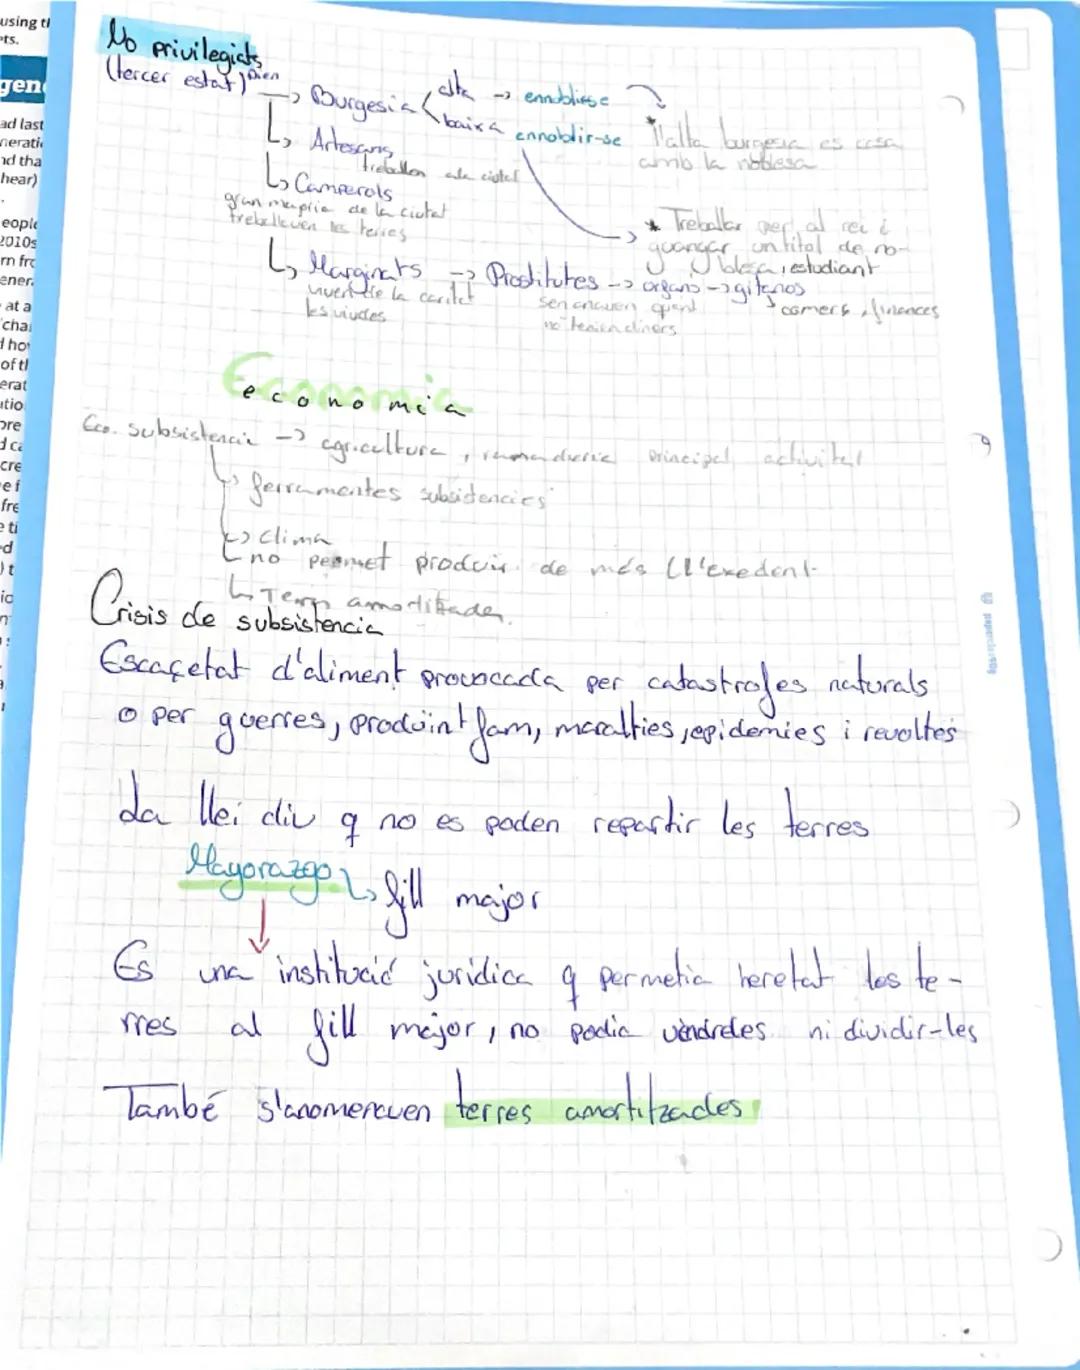 using t
ets.
gen
ad last
nerati
nd tha
hear)
eople
2010s
rn fro
ener
at a
cha
d ho
of tl
erat
atio
ore
d ca
cre
e f
fre
e ti
ed
No privilegiats
(tercer estat) Dien
Burgesia
alta → ennoblirse
baixa ennoblir-se
* l'alta burgesia es casa
amb la noblesa
Artesans
treballen a la ciutat
Camperols
gran majoria de la ciutat
treballaven les terres
* Treballar per al rei i
guanyar un titol de no-
blesa, estudiant
Marginats → Prostitutes → organs → gitanos
viuen de la caritat
les viudes
sen anaven quant
no tenien diners
comerç, finances
Economia
economia
Eco. subsistencia → agricultura, ramaderia principal activitat
ferramentes subsidencies
clima
no permet produir de més (l'exedent
Terra amortitzades.
Crisis de subsistencia
Escaçetat d'aliment provocada per catastrofes naturals
o per guerres, produint fam, maralties, epidemies i revoltes
La llei diu q no es poden repartir les terres
Mayorazgo fill major
Es una institució juridica q permetia heretat les te-
rres al fill major, no podia vendreles ni dividir-les
També s'anomenaven terres amortitzades